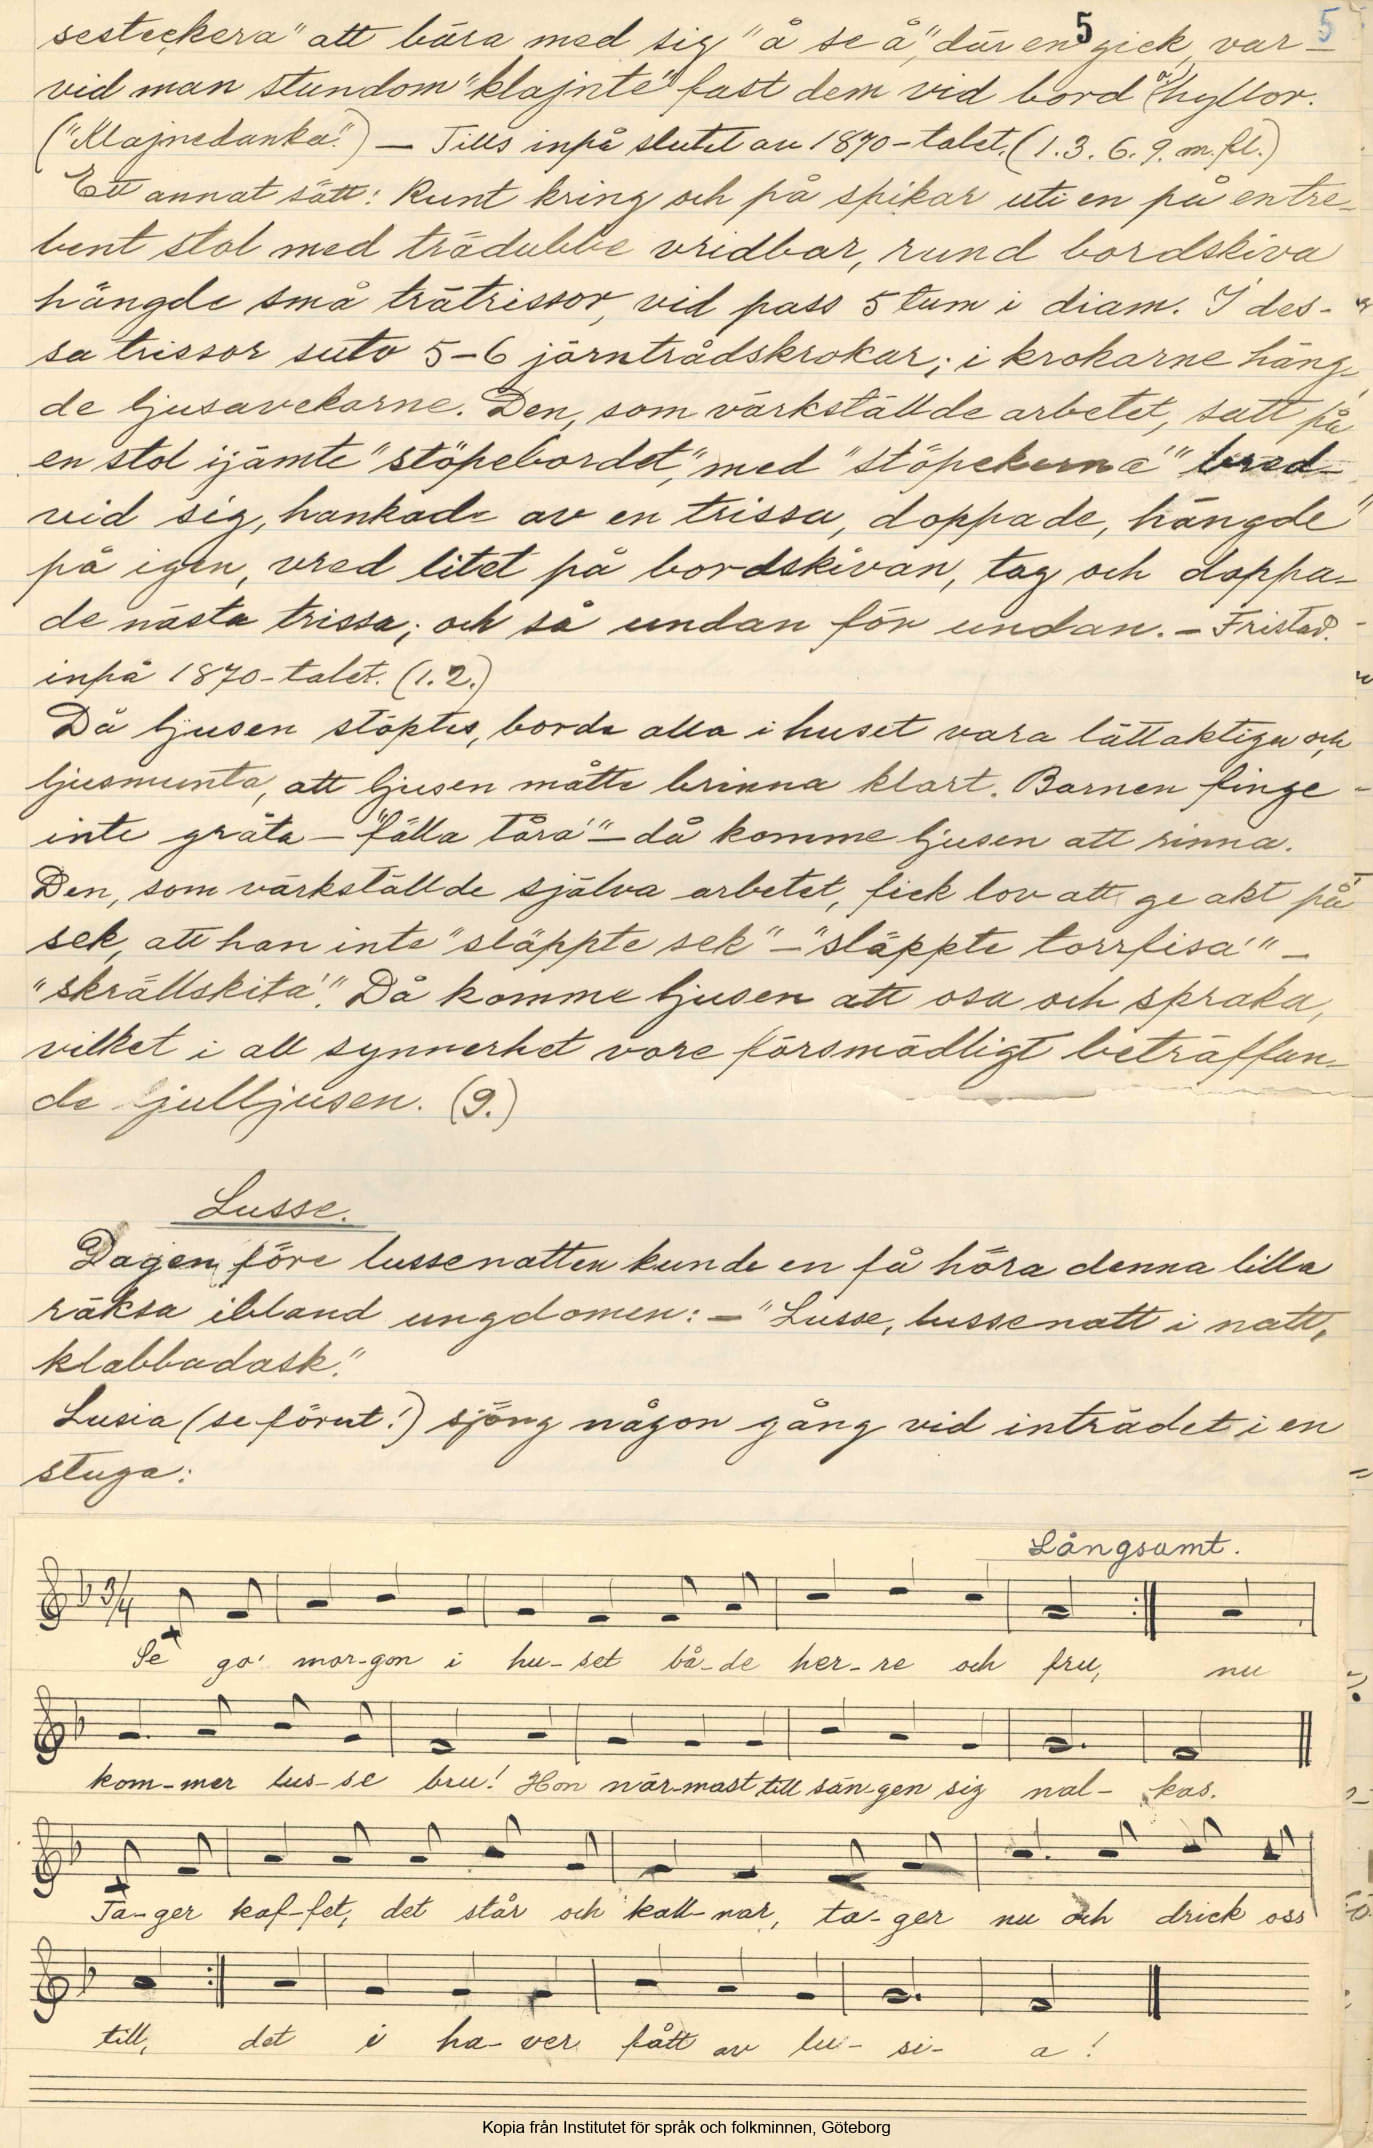 5 5
sesteckera" att bära med sig "å se å", där en gick, var-
vid man stundom "klajnte" fast dem vid bord o. hyllor.
("Klajnedanka".) — Tills inpå slutet av 1870-talet. (1. 3. 6. 9. m. fl.)
Ett annat sätt: Runt kring och på spikar uti en på en tre-
bent stol med trädubbe vridbar, rund bordskiva
hängde små trätrissor, vid pass 5 tum i diam. I des-
sa trissor suto 5-6 järntrådskrokar; i krokarne häng-
de ljusavekarne. Den, som värkställde arbetet, satt på
en stol ijämte "stöpebordet", med "stöpekerna'" bred-
vid sig, hankade av en trissa, doppade, "hängde"
på igen, vred litet på bordskivan, tog och doppa-
de nästa trissa; och så undan för undan. — Fristad.
inpå 1870-talet. (1. 2.)
Då ljusen stöptes, borde alla i huset vara lättaktiga och
ljusmunta, att ljusen måtte brinna klart. Barnen finge
inte gråta — "fälla tåra'" — då komme ljusen att rinna.
Den, som värkställde själva arbetet, fick lov att ge akt på
sek, att han inte "släppte sek" — "släppte torrfisa'" —
"skrällskita'". Då komme ljusen att osa och spraka,
vilket i all synnerhet vore försmädligt beträffan-
de julljusen. (9.)
Lusse.
Dagen före lussenatten kunde en få höra denna lilla
räksa ibland ungdomen: — "Lusse, lussenatt i natt,
klabbadask."
Lusia (se förut!) sjöng någon gång vid inträdet i en
stuga:
Långsamt.
3/4
Se go' mor-gon i hu-set bå-de her-re och fru, nu
kom-mer lus-se bru! Hon när-mast till sän-gen sig nal- kas.
Ta-ger kaf-fet, det står och kall-nar, ta-ger nu och drick oss
till, det i ha-ver fått av lu- si- a!
Kopia från Institutet för språk och folkminnen, Göteborg